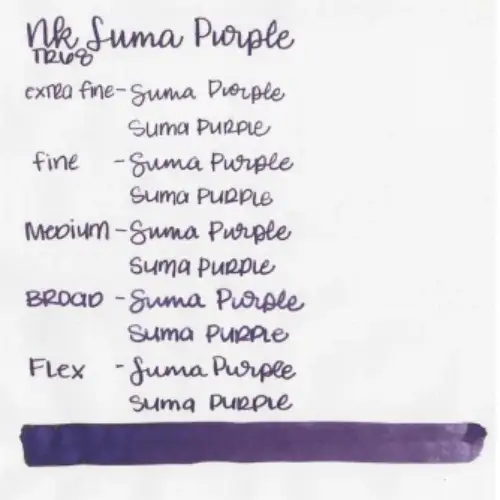 NK Suma Purple
TR68
extra fine - Suma Purple
Suma Purple
fine - Suma Purple
Suma Purple
Medium - Suma Purple
Suma Purple
Broad - Suma Purple
Suma Purple
Flex - Suma Purple
Suma Purple